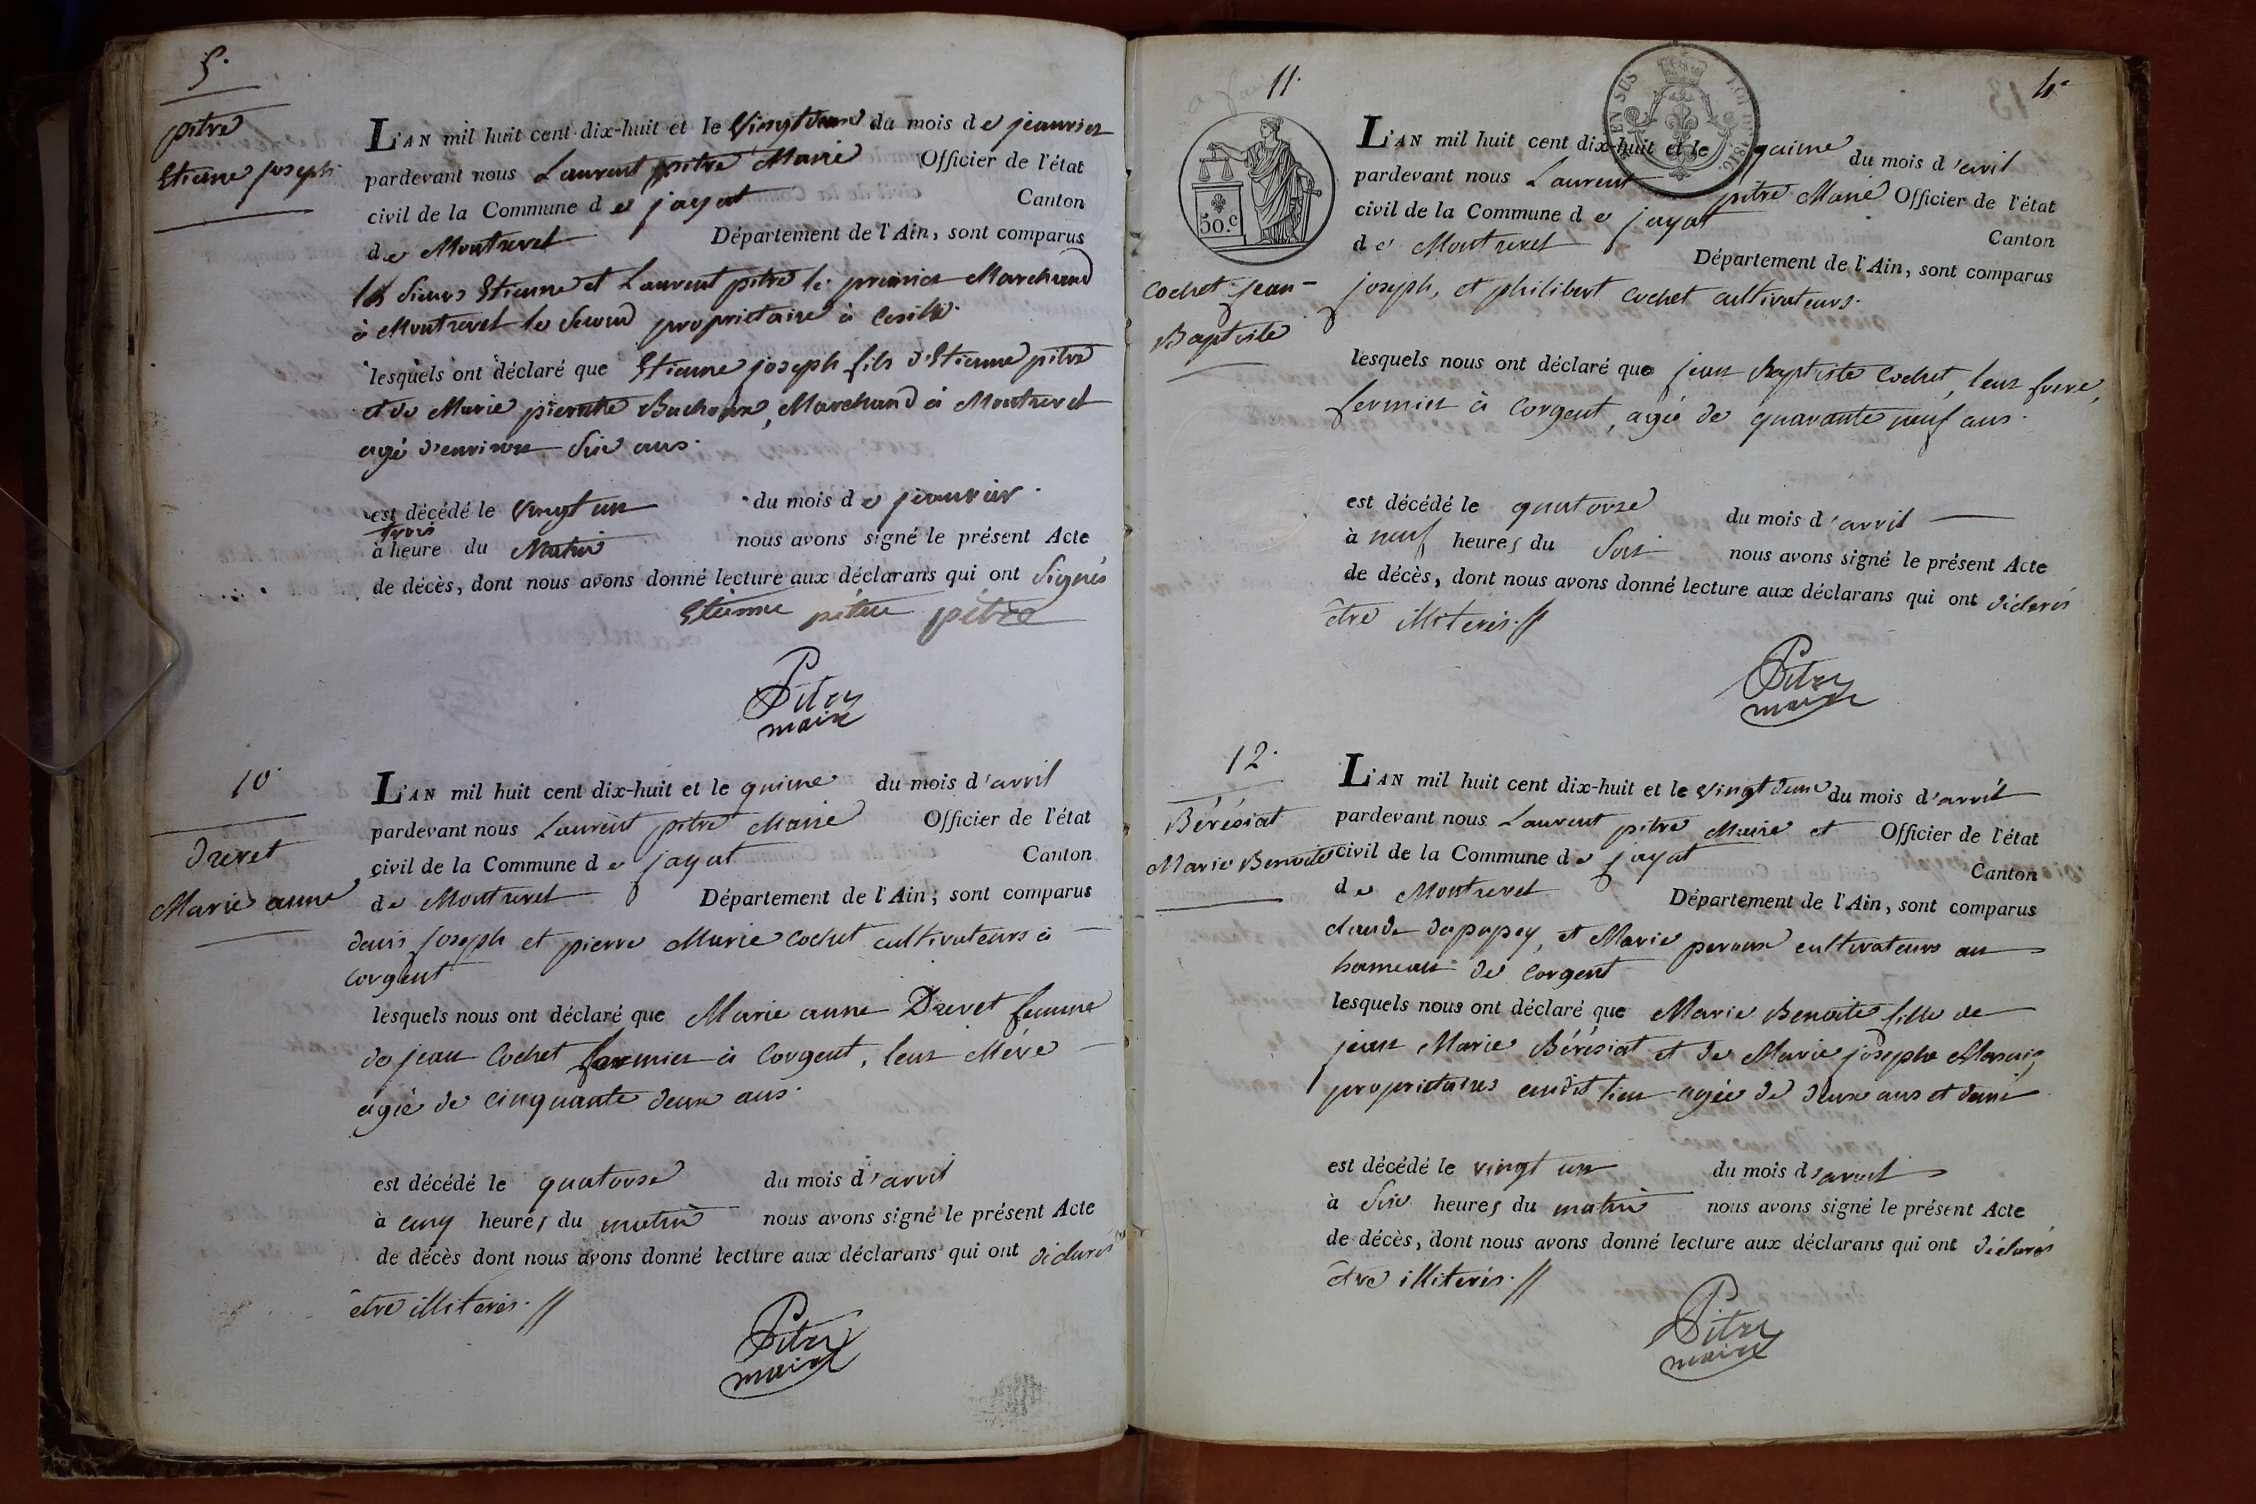 5.
pitre
Etienne joseph
L'AN mil huit cent dix-huit et le vingt deux du mois de jeanvier
pardevant nous Laurent pitre Maire Officier de l'état
civil de la Commune de jayat Canton
de Montrevel Département de l'Ain, sont comparus
les sieurs Etienne et Laurent pitre le premier Marchand
à Montrevel le second propriétaire à
lesquels ont déclaré que Etienne joseph fils d'Etienne pitre
et de Marie pierrette Buchoux, Marchand à Montrevel
agé d'environ six ans.
est décédé le vingt un du mois de jeanvier.
trois
à heure du Matin nous avons signé le présent Acte
de décès, dont nous avons donné lecture aux déclarans qui ont signés
Etienne pitre pitre
Pitre
maire
10.
Drevet
Marie anne
L'AN mil huit cent dix-huit et le quinze du mois d'avril
pardevant nous Laurent pitre Maire Officier de l'état
civil de la Commune de jayat Canton
de Montrevel Département de l'Ain; sont comparus
denis joseph et pierre Marie Cochet cultivateurs à
Corgent
lesquels nous ont déclaré que Marie anne Drevet femme
de jean Cochet fermier à Corgent, leur Mére
agée de cinquante deux ans.
est décédé le quatorze du mois d'avril
à cinq heures du matin nous avons signé le présent Acte
de décès dont nous avons donné lecture aux déclarans qui ont déclarés
être illiterés.//
Pitre
maire
11.
4e
EN SUS
ROI DE 1816.
50.c
Cochet jean-
Baptiste
L'AN mil huit cent dix-huit et le quinze du mois d'avril
pardevant nous Laurent pitre Maire Officier de l'état
civil de la Commune de jayat Canton
de Montrevel Département de l'Ain, sont comparus
joseph, et philibert Cochet cultivateurs.
lesquels nous ont déclaré que jean Baptiste Cochet, leur frere,
fermier à Corgent, agé de quarante neuf ans.
est décédé le quatorze du mois d'avril
à neuf heures du soir nous avons signé le présent Acte
de décès, dont nous avons donné lecture aux déclarans qui ont déclarés
être illiterés.//
Pitre
maire
12.
Bérésiat
Marie Benoite
L'AN mil huit cent dix-huit et le vingt deux du mois d'avril
pardevant nous Laurent pitre Maire et Officier de l'état
civil de la Commune de jayat Canton
de Montrevel Département de l'Ain, sont comparus
claude dupupey, et Marie peroux cultivateurs au
hameau de Corgent
lesquels nous ont déclaré que Marie Benoite fille de
jean Marie Bérésiat et de Marie josephe
propriétaires audit lieu agée de deux ans et demi
est décédé le vingt un du mois d'avril
à six heures du matin nous avons signé le présent Acte
de décès, dont nous avons donné lecture aux déclarans qui ont déclarés
être illiterés.//
Pitre
maire